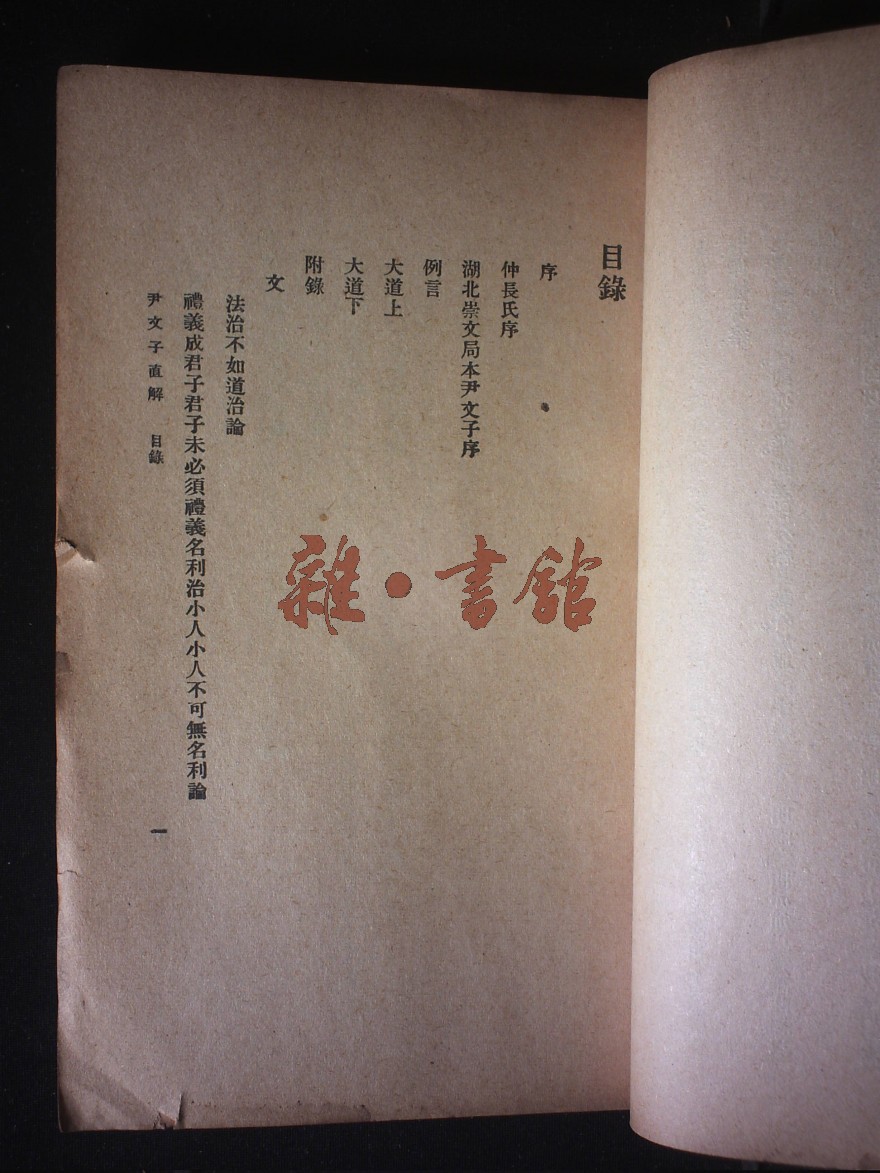 目錄
序
仲長氏序
湖北崇文局本尹文子序
例言
大道上
大道下
附錄
文
法治不如道治論
禮義成君子君子未必須禮義名利治小人小人不可無名利論
尹文子直解 目錄 一
雜·書館